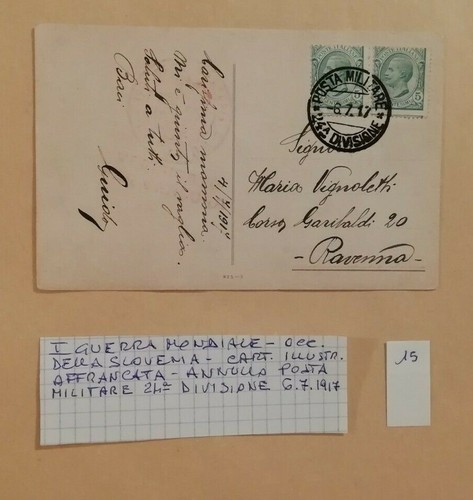 4/7/1917
Carissima mamma.
Mi è giunto il vaglia.
Saluti a tutti.
Baci
Guido
POSTE ITALIANE
5
POSTA MILITARE
6.7.17
24ª DIVISIONE
Signora
Maria Vignoletti
Corso Garibaldi 20
- Ravenna -
I GUERRA MONDIALE - OCC.
DELLA SLOVENIA - CART. ILLUSTR.
AFFRANCATA - ANNULLO POSTA
MILITARE 24ª DIVISIONE 6.7.1917
15